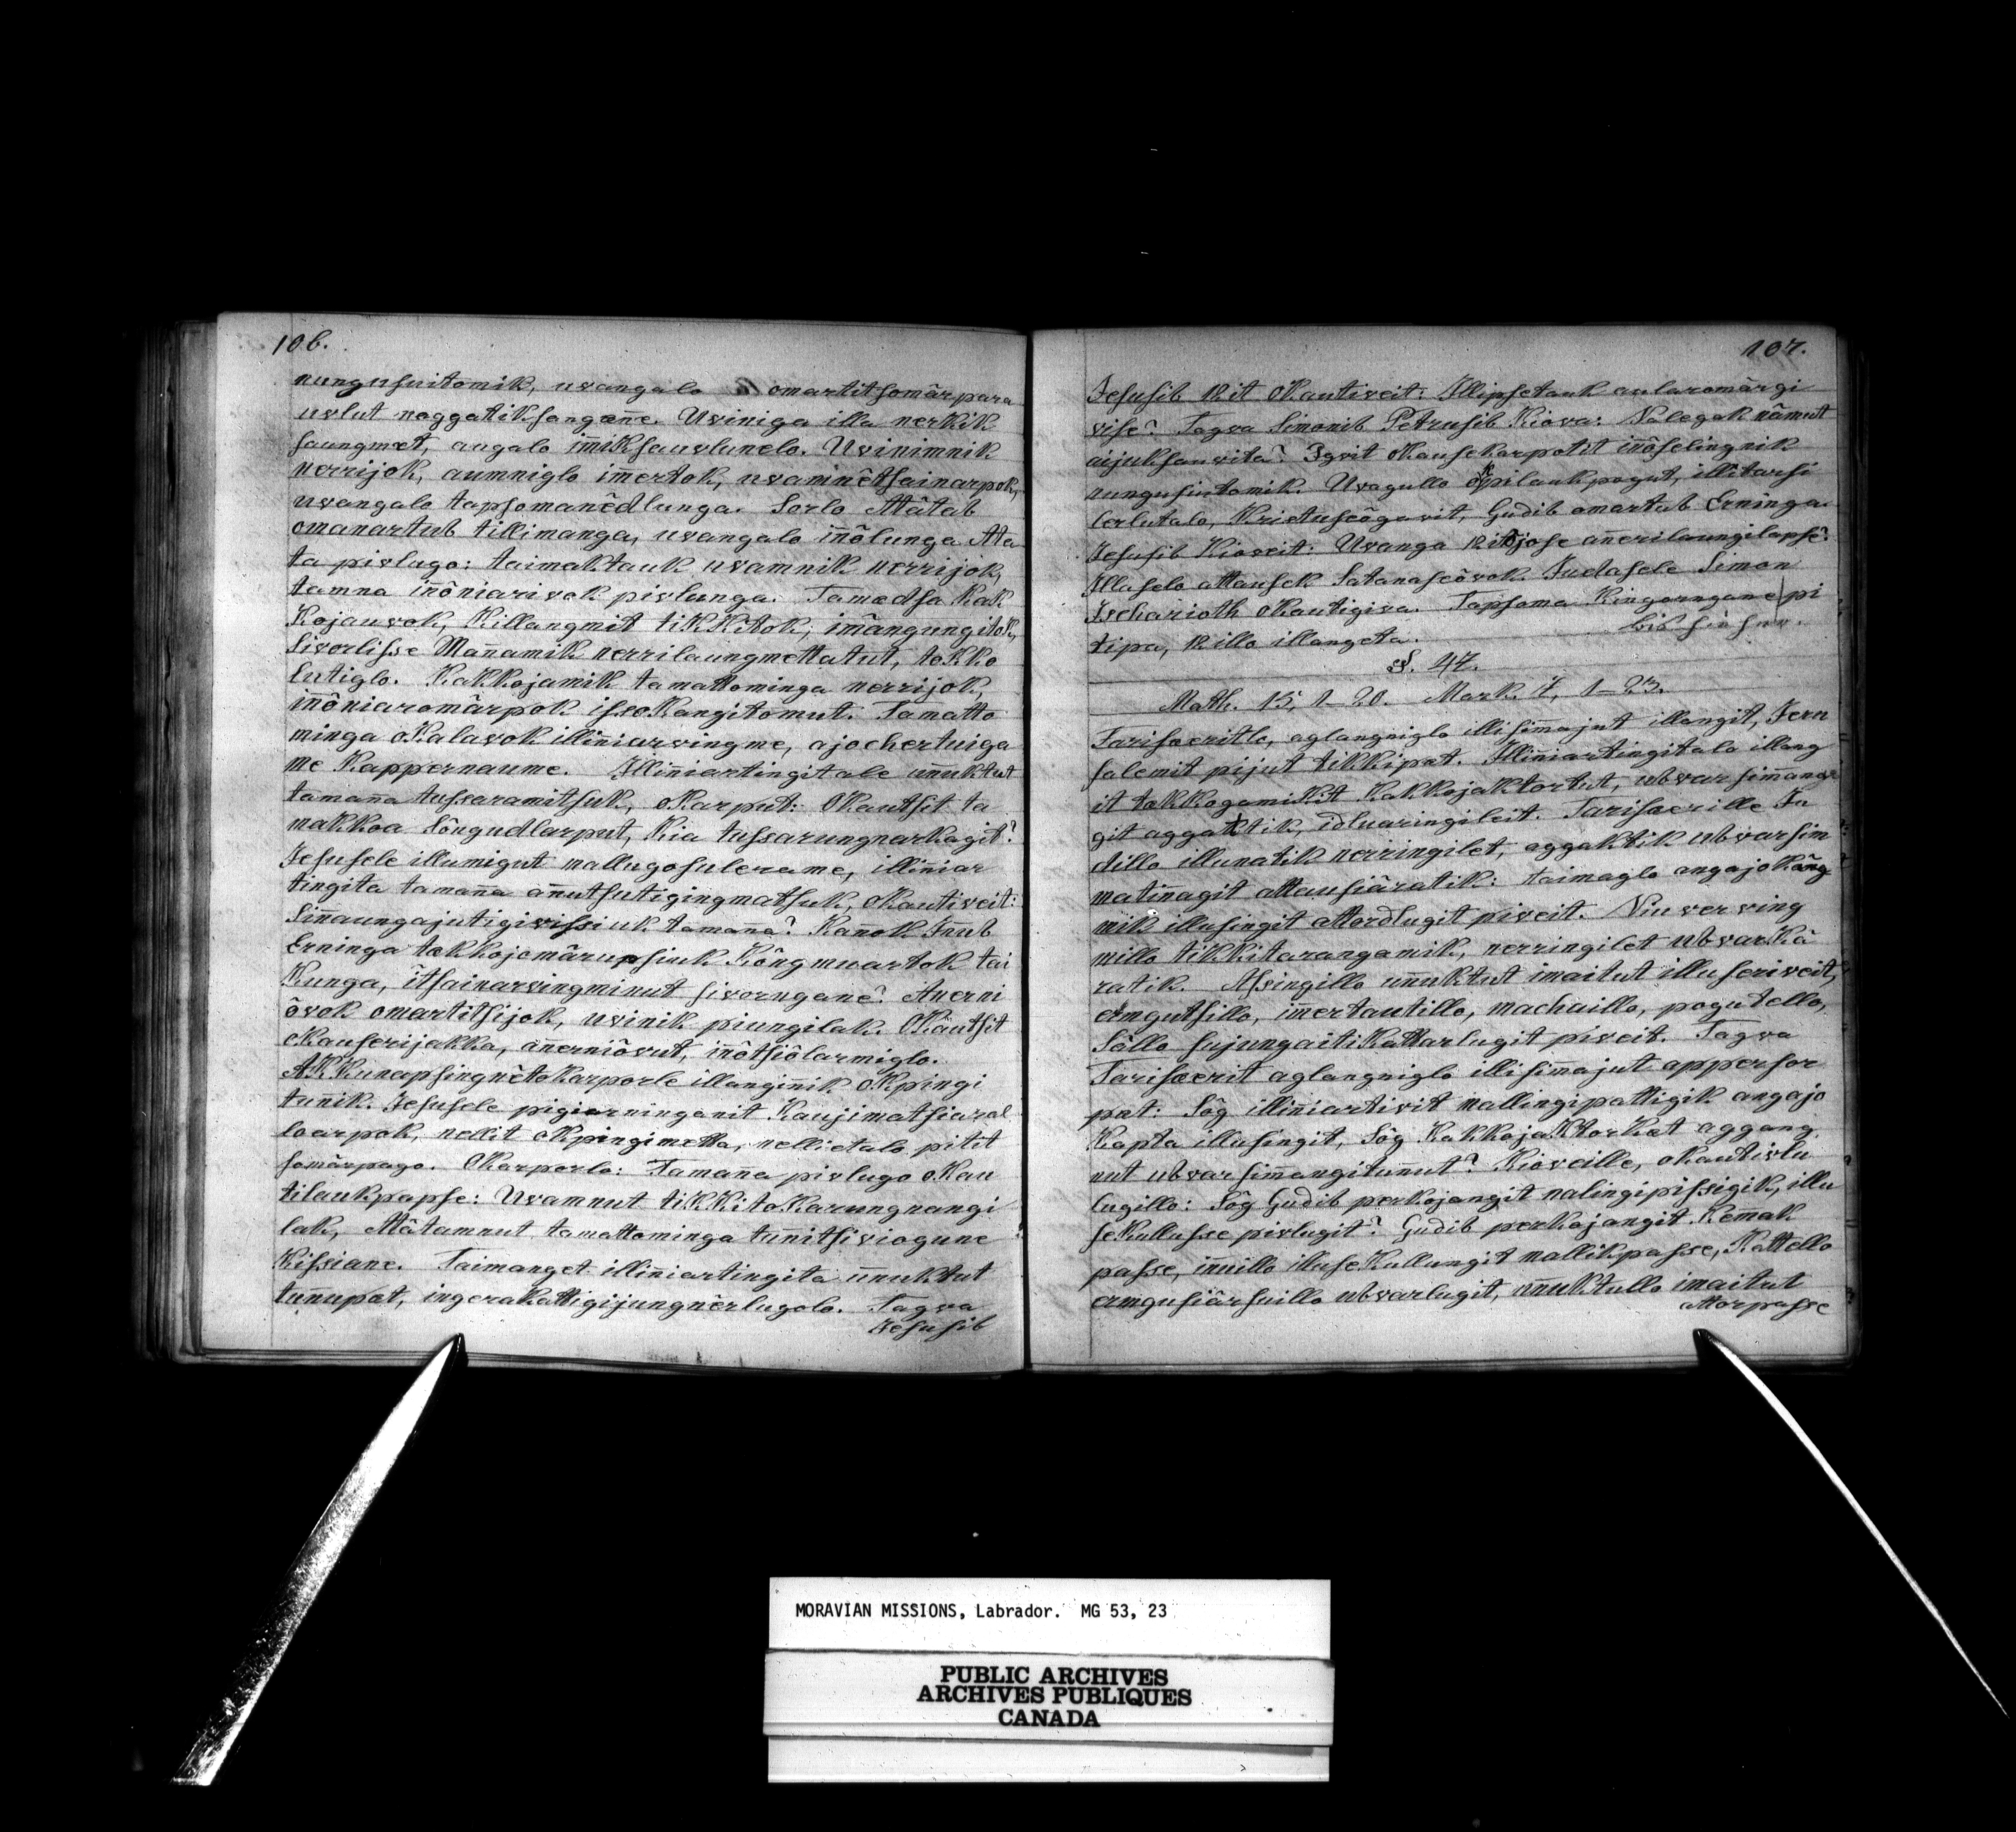 106.
nungusuitomik, uvangalo omartitsomârpara
uvlut noggatiksangæne. Uviniga illa nerkik
saungmet, augalo im̄iksauvlunelo. Uvinimnik
nerrijok, aumniglo im̄ertok, uvamnêtsainarpok,
uvangalo tapsomanêdlunga. Sorlo Atâtab
omanartub tillimanga, uvangalo in̄ôlunga Atâ
ta pivlugo: taimaktauk uvamnik nerrijok,
tamna in̄ôniarivok pivlunga. Tamædsa Kak
Kojauvok, Killangmit tikKitok; imângungitok,
Sivorlisse Man̄amik nerrilaungmettatut, tokko
lutiglo. Kakkojamik tamattominga nerrijok,
in̄ôniaromârpok issoKangitomut. Tamatto
minga oKalavok illin̄iarvingme, ajochertuiga
me Kappernaume. Illin̄iartingitale un̄uktut
taman̄a tussaramitsuk, oKarput: OKautsit ta
makkoa Sôngudlarput, Kia tussarungnarkagit?
Jesusele illumigut nallugosulerame, illin̄iar
tingita taman̄a an̄utsutigingmatsuk, oKautiveit:
Sin̄aungajutigivissiuk taman̄a? Kan̄ok In̄ub
Erninga tækkojomârupsiuk Kôngmuartok tai
Kunga, îtsainarvingminut sivorngane? Anerni
ôvok omartitsijok, uvinik piungilak. OKautsit
oKauserijakka, an̄erniôvut, in̄ôtsiôlarmiglo.
AKKunapsingnêtoKarporle illangin̄ik oKpingi
tun̄ik. Jesusele pigiarninganit Kaujimatsiaral
loarpok, nellit okpingimetta, nellietalo pitit
somârpago. OKarporlo: Taman̄a pivlugo oKau
tilaukpapse: Uvamnut tikKitoKarungnangi
lak, Atâtamnut tamattominga tun̄itsiviogune
Kissiane. Taimanget illin̄iartingita un̄uktut
tunupæt, ingerakattigijungnêrlugolo. Tagva
Jesusib
107.
Jesusib 12 it oKautiveit: Illipsetauk aularomârgi
vise? Tagva Simonib Petrusib Kiova: Nalegak nâmut
aijuksauvita? Igvit oKauseKarpotit in̄ôselingnik
nungusuitomik. Uvagullo okpilaukpogut, illitarsi
lerlutalo, Kristuseôgavit, Gudib omartub Erninga.
Jesusib Kioveit: Uvanga 12 itojose an̄erilaungilapse?
Illaselo attausek Satanaseôvok. Judasele Simon
Ischarioth oKautigiva. Tapsoma Kingorngane pi
tipa, 12 illo illangeta.
bis hieher.
§. 47.
Math. 15, 1-20. Mark. 7, 1-23.
Farisæeritlo, aglangniglo illisim̄ajut illangit, Jeru
salemit pijut tikkipæt. Illin̄iartingitalo illang
it tækkogamikit Kakkojaktortut, ubvarsim̄anga
git aggaktik, idluaringileit. Farisæerille Ju
dillo illunatik nerringilet, aggaktik ubvarsim
matinagit attausiâratik: taimaglo angajoKâng
mik illusingit attordlugit piveit. Niuverving
millo tikkitarangamik, nerringilet ubvarKâ
ratik. Asingillo un̄uktut imaitut illuseriveit,
Ermgutsillo, im̄ertautillo, machaillo, pogutello,
Sâllo sujungaitiKattarlugit piveit. Tagva
Farisæerit aglangniglo illisim̄ajut appersor
pæt: Sôg illin̄iartivit nallingipattigik angajo
Kapta illusingit, Sôg KakkojaktorKæt aggang
nut ubvarsim̄angitun̄ut? Kioveille, oKautivlu
lugillo: Sôg Gudib perkojangit nalingipissigik, illu
seKullusse pivlugit? Gudib perkojangit Kem̄ak
passe, in̄uillo illuseKullungit nallikpasse, Kattello
ermgusiârsuillo ubvarlugit, un̄uktullo imaitut
Attorpasse
MORAVIAN MISSIONS, Labrador. MG 53, 23
PUBLIC ARCHIVES
ARCHIVES PUBLIQUES
CANADA